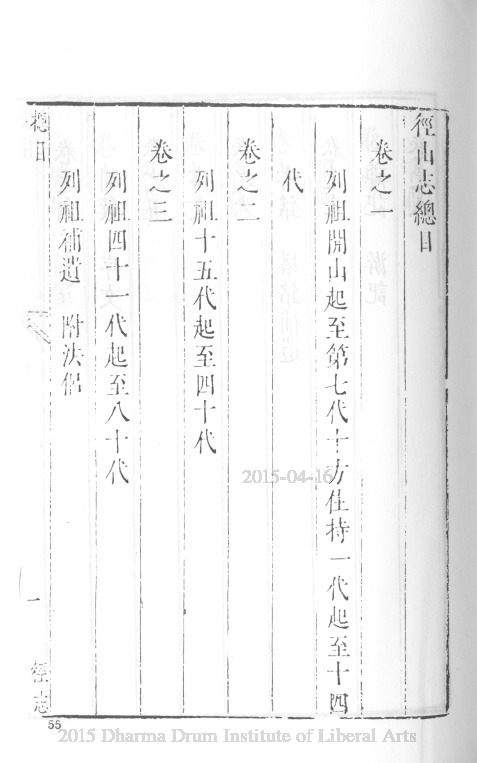 徑山志總目
卷之一
列祖開山起至第七代十方住持一代起至十四
代
卷之二
列祖十五代起至四十代
卷之三
列祖四十一代起至八十代
列祖補遺 附法侶
總目
一
徑志
55
2015-04-16
2015 Dharma Drum Institute of Liberal Arts